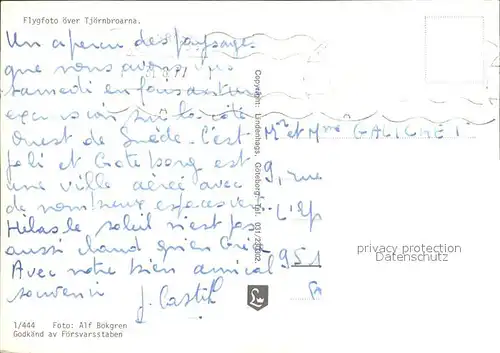 Flygfoto över Tjörnbroarna.
Un aperçu des paysages
que nous avons vus
samedi en faisant une
excursion sur la côte
Ouest de Suède. C'est
joli et Goteborg est
une ville aérée avec
de nombreux espaces verts.
Hélas le soleil n'est pas
aussi chaud qu'en Grèce
Avec notre bien amical
souvenir
J. Castil
Copyright: Lindenhags, Göteborg. Tel. 031/
Mr et Mme GALICHET
9, rue
L'Ep
951
privacy protection
Datenschutz
1/444 Foto: Alf Bökgren
Godkänd av Försvarsstaben